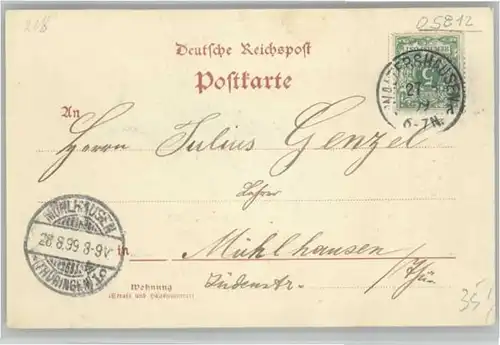 218
05812
Deutsche Reichspost
Postkarte
WALTERSHAUSEN
27
6-7N.
An
Herrn Julius Genzel
Lehrer
MÜHLHAUSEN
28.8.99 8-9V
(THÜRINGEN) 1c
in Mühlhausen
/Thür.
Wohnung
(Straße und Hausnummer)
35